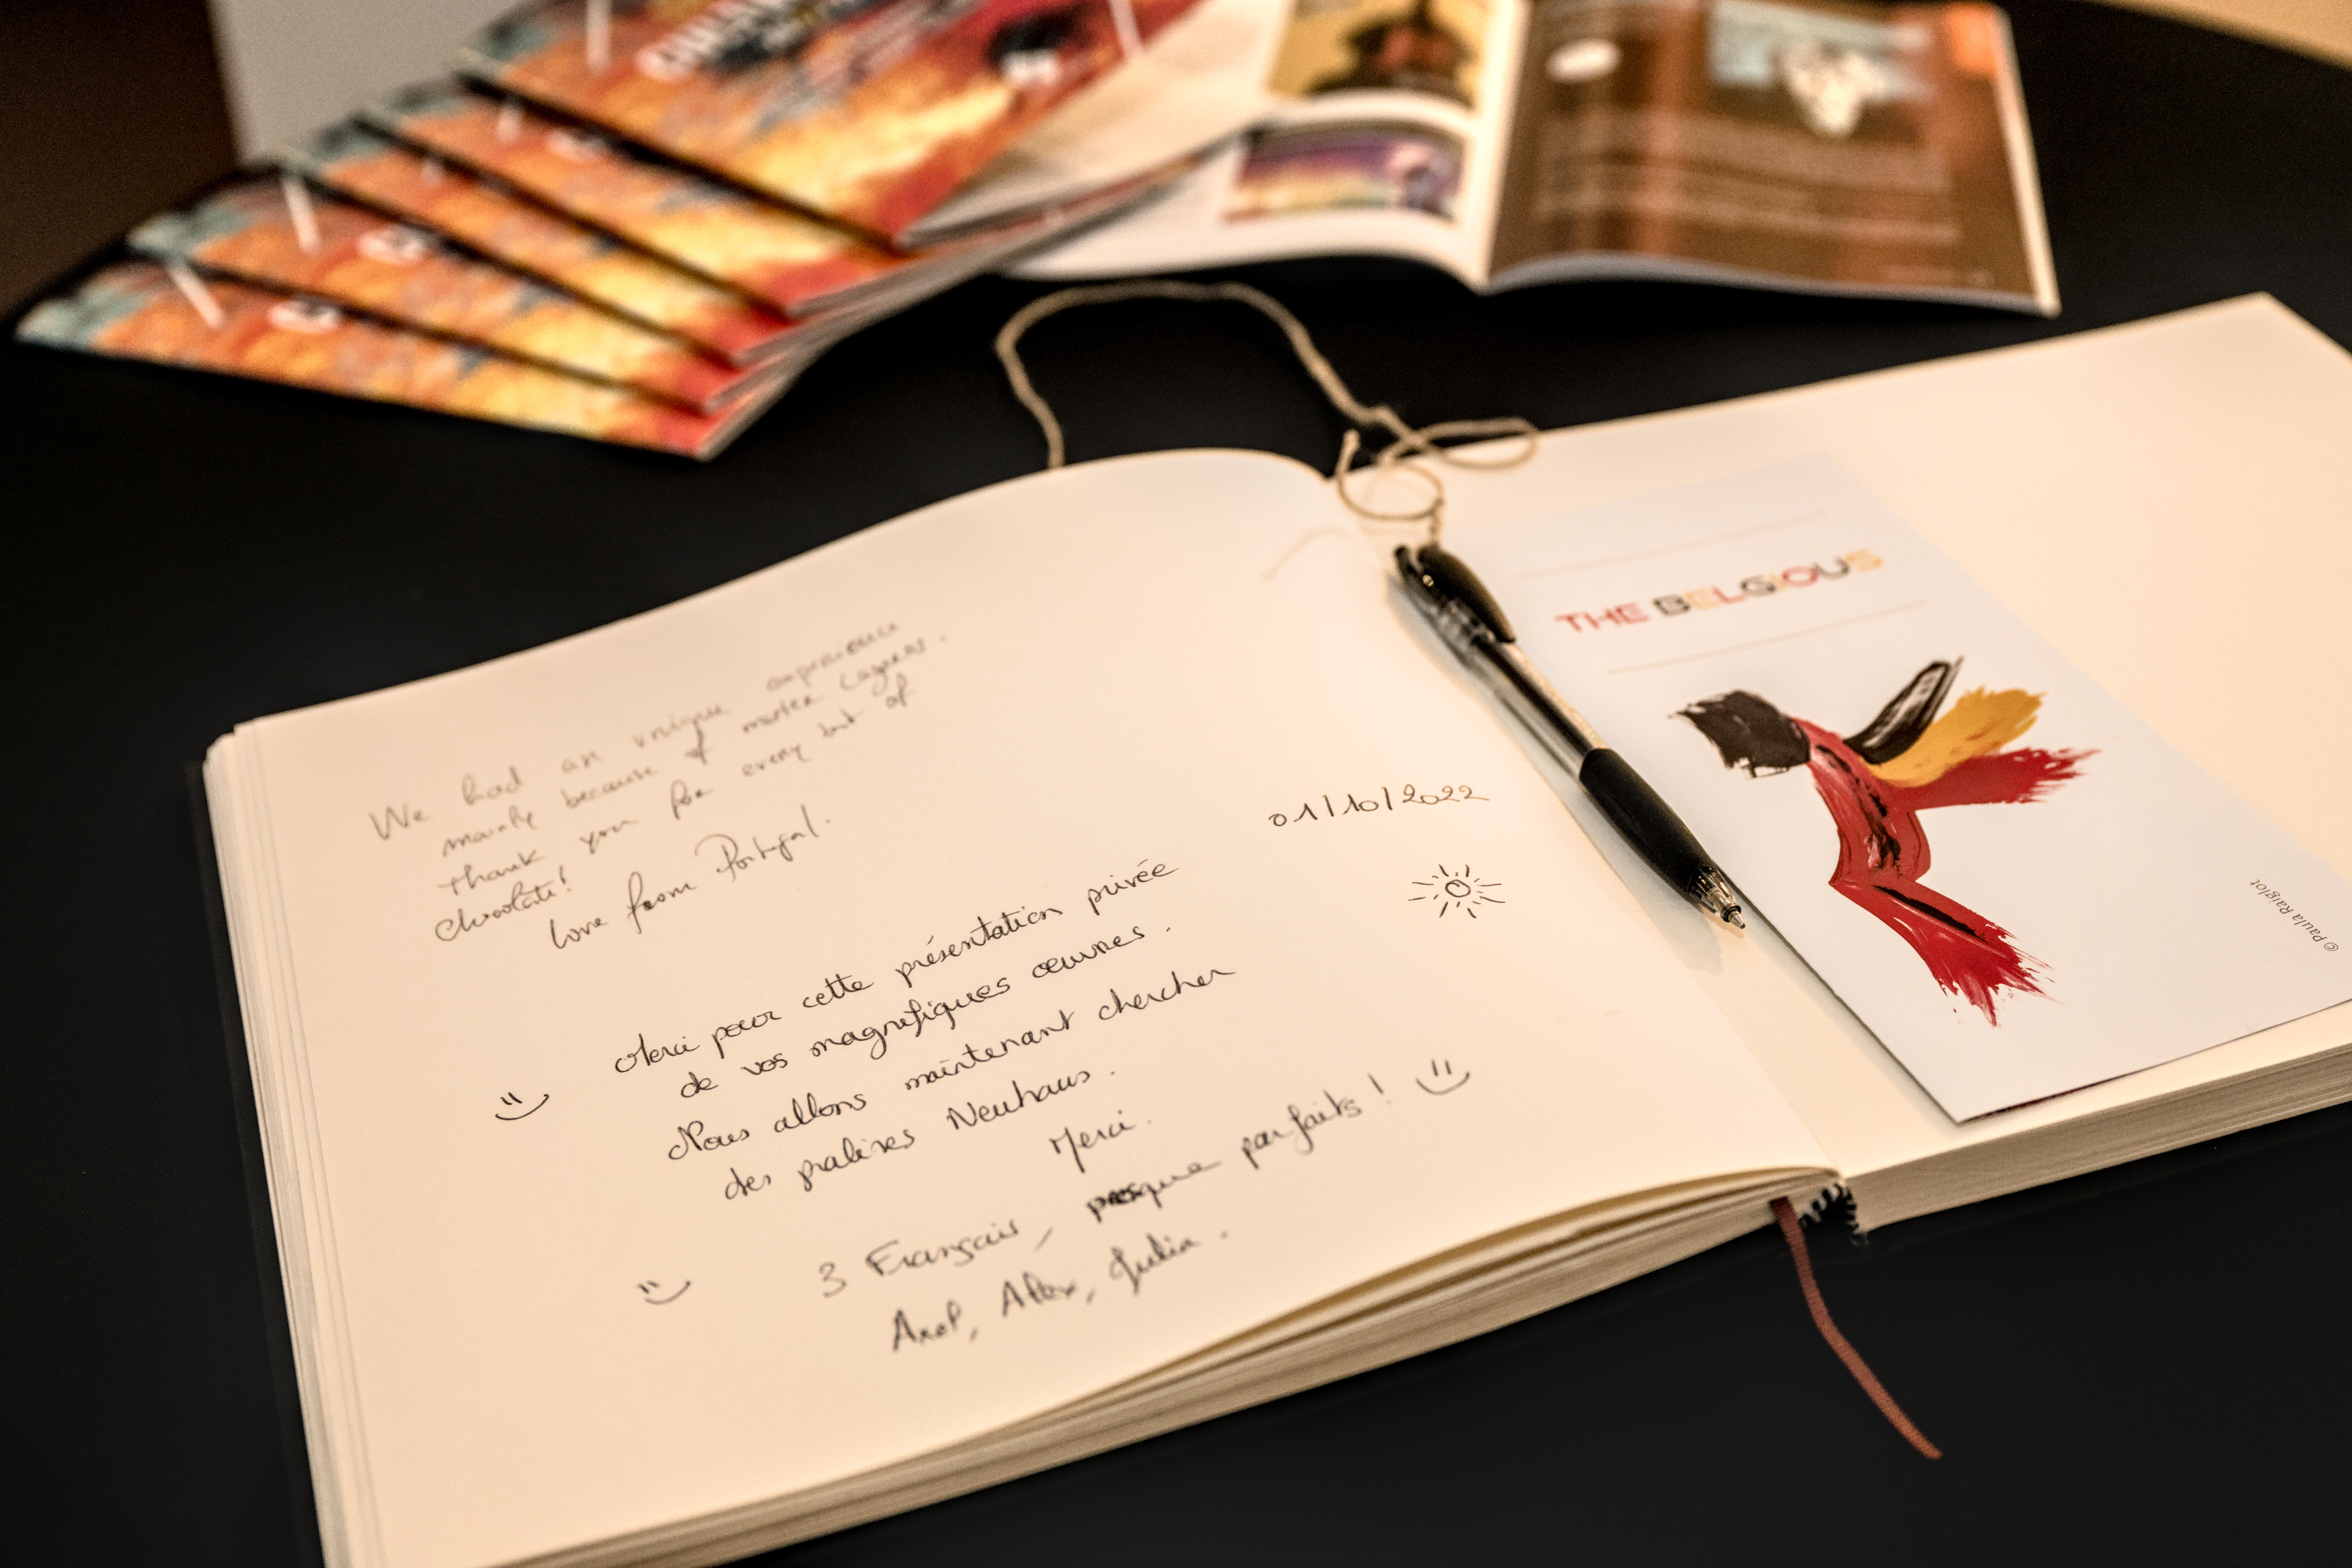 We had an unique experience
mainly because of master Layers.
Thank you for every bit of
chocolate!
Love from Portugal.
01/10/2022
Merci pour cette présentation privée
de vos magnifiques œuvres.
Nous allons maintenant chercher
des pralines Neuhaus.
Merci.
3 Français, presque parfaits !
Axel, Alex, Julia.
THE BELGIOUS
© Paula Raiglot